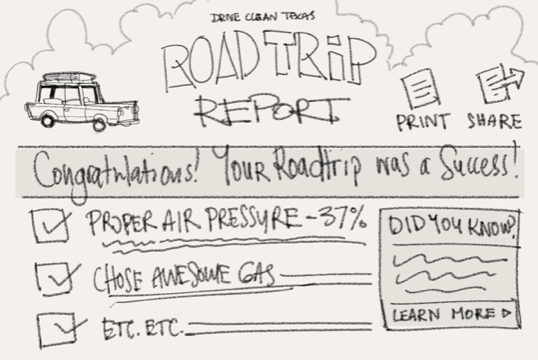 DRIVE CLEAN TEXAS
ROAD TRIP
REPORT
PRINT SHARE
Congratulations! Your Roadtrip was a Success!
PROPER AIR PRESSURE - 37%
DID YOU KNOW?
CHOSE AWESOME GAS
ETC. ETC.
LEARN MORE